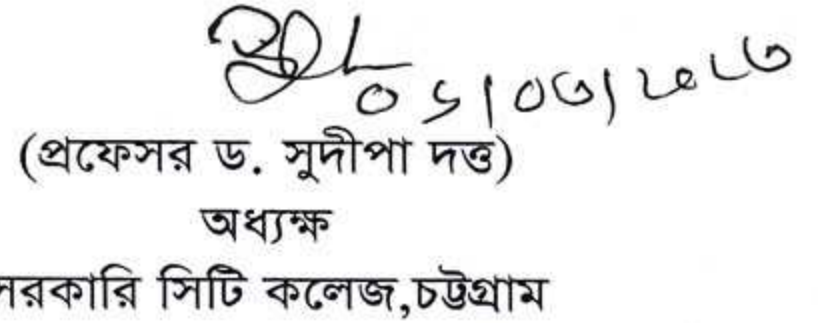 ০১/০৩/২০২৩
(প্রফেসর ড. সুদীপা দত্ত)
অধ্যক্ষ
সরকারি সিটি কলেজ,চট্টগ্রাম